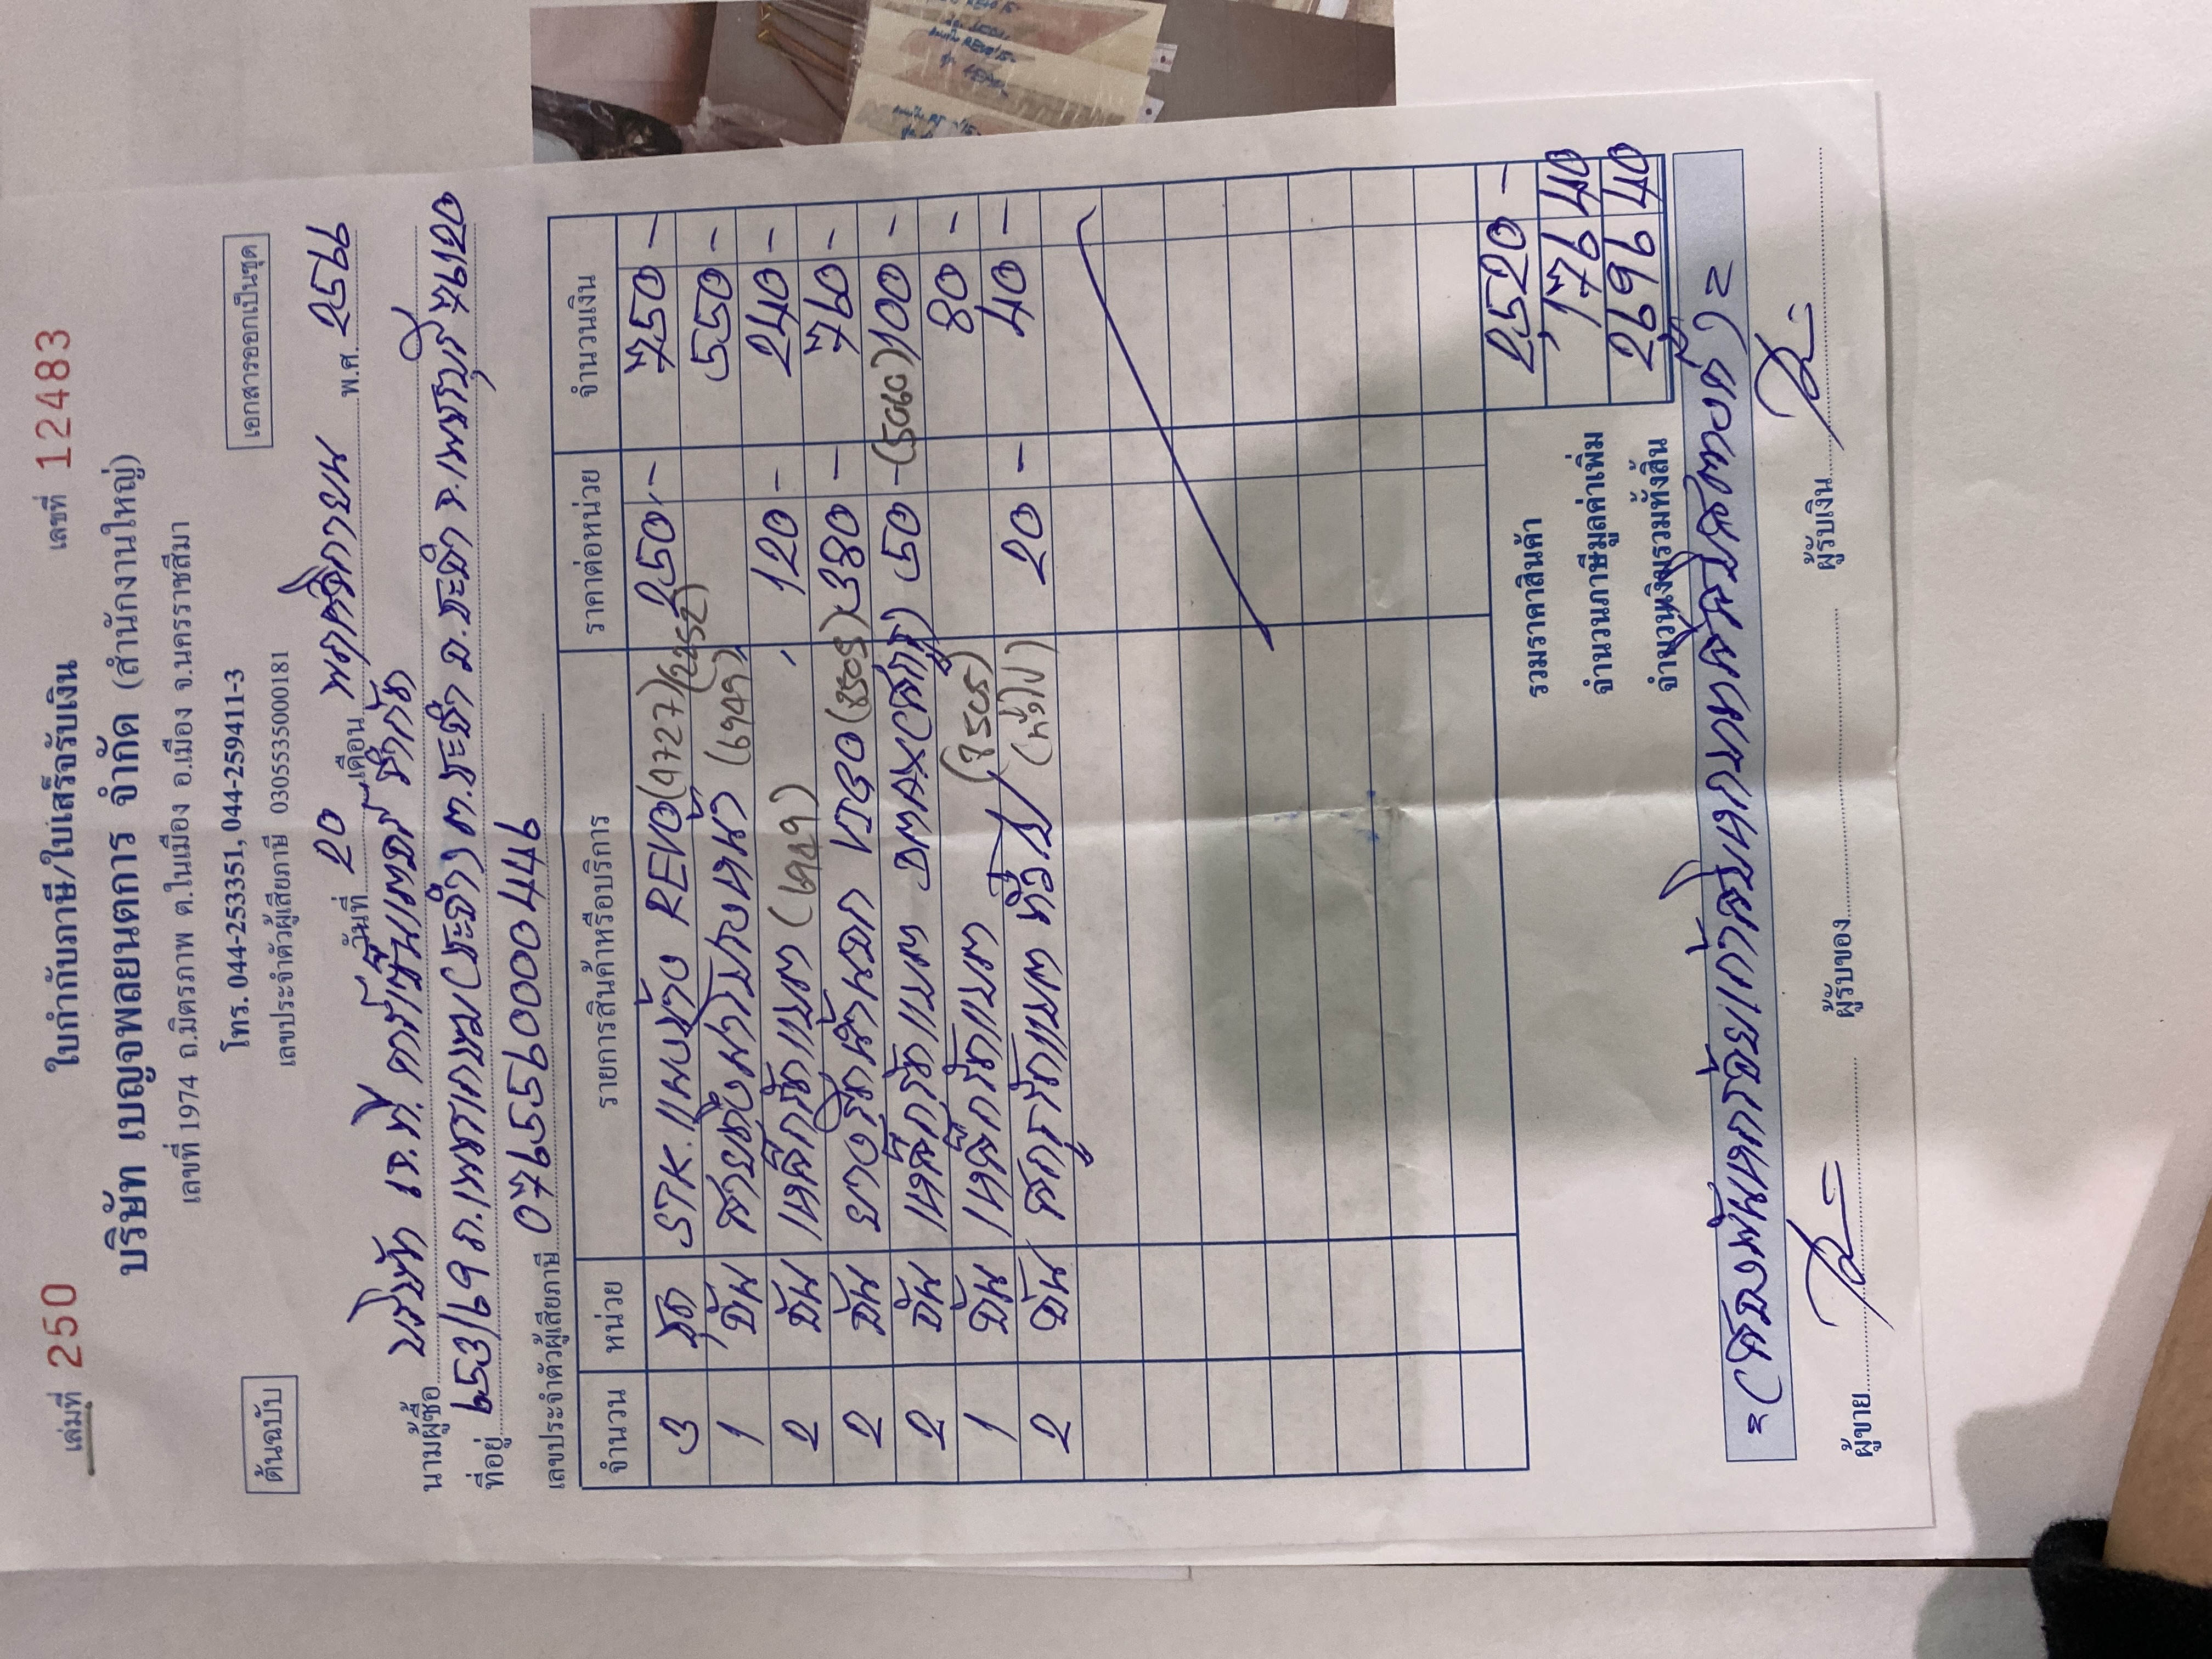 เล่มที่ 250 ใบกำกับภาษี/ใบเสร็จรับเงิน เลขที่ 12483
บริษัท เบญจพลยนตการ จำกัด (สำนักงานใหญ่)
เลขที่ 1974 ถ.มิตรภาพ ต.ในเมือง อ.เมือง จ.นครราชสีมา
ต้นฉบับ โทร. 044-253351, 044-259411-3 เอกสารออกเป็นชุด
เลขประจำตัวผู้เสียภาษี 0305535000181
วันที่ 20 เดือน พฤศจิกายน พ.ศ. 2566
นามผู้ซื้อ บริษัท เจ.ที. คาร์เซ็นเตอร์ จำกัด
ที่อยู่ ถ.เพชรเกษม ต.ชะอำ อ.ชะอำ จ.เพชรบุรี 76120
เลขประจำตัวผู้เสียภาษี
จำนวน หน่วย รายการสินค้าหรือบริการ ราคาต่อหน่วย จำนวนเงิน
3 ชุด STK. REVO (4727) (2252) 250.- 750 -
1 อัน (6949) 550 -
2 อัน เหล็กรัดแหนบ (6949) 120 - 240 -
2 อัน VIGO (8505) 380 - 760 -
2 อัน เหล็กรัดแหนบ DMAX 50 - 100 -
1 อัน เหล็กรัดแหนบ 80 -
2 อัน สกรูรัดแหนบ ทั่วไป (ทั่วไป) 20 - 40 -
รวมราคาสินค้า 2,520 -
จำนวนภาษีมูลค่าเพิ่ม 176 40
จำนวนเงินรวมทั้งสิ้น 2,696 40
=(สองพันหกร้อยเก้าสิบหกบาทสี่สิบสตางค์)=
ผู้ขาย ผู้รับของ ผู้รับเงิน